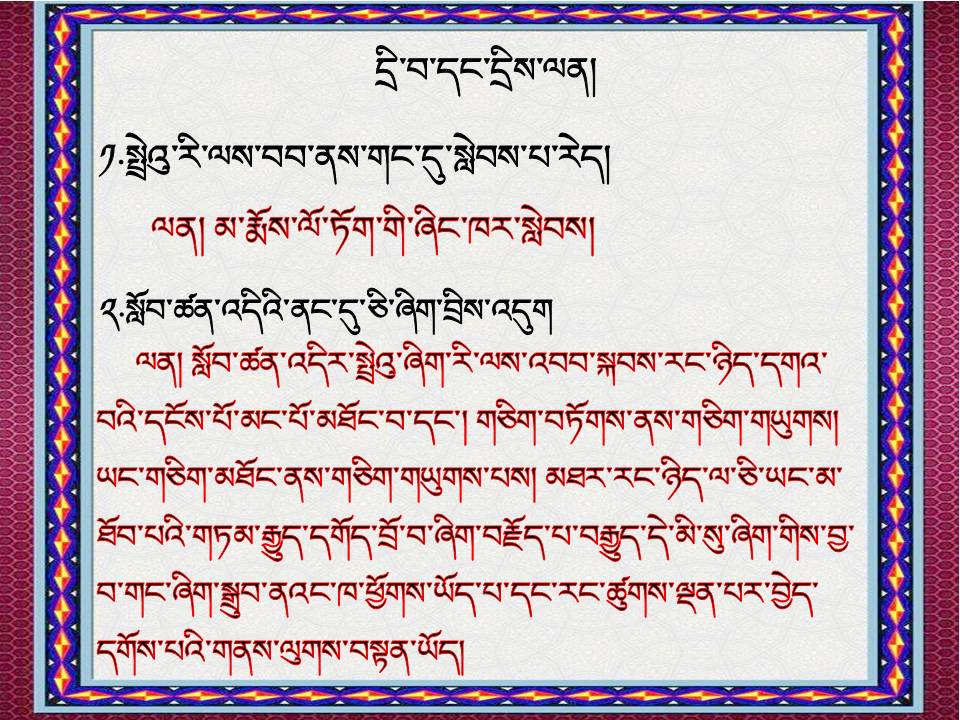 དྲི་བ་དང་དྲིས་ལན།
༡.སྤྲེའུ་རི་ལས་བབ་ནས་གང་དུ་སླེབས་པ་རེད།
ལན། མ་རྨོས་ལོ་ཏོག་གི་ཞིང་ཁར་སླེབས།
༢.སློབ་ཚན་འདིའི་ནང་དུ་ཅི་ཞིག་བྲིས་འདུག
ལན། སློབ་ཚན་འདིར་སྤྲེའུ་ཞིག་རི་ལས་འབབ་སྐབས་རང་ཉིད་དགའ་
བའི་དངོས་པོ་མང་པོ་མཐོང་བ་དང་། གཅིག་བཏོགས་ནས་གཅིག་གཡུགས།
ཡང་གཅིག་མཐོང་ནས་གཅིག་གཡུགས་པས། མཐར་རང་ཉིད་ལ་ཅི་ཡང་མ་
ཐོབ་པའི་གཏམ་རྒྱུད་དགོད་བྲོ་བ་ཞིག་བརྗོད་པ་བརྒྱུད་དེ་མི་སུ་ཞིག་གིས་བྱ་
བ་གང་ཞིག་སྒྲུབ་ནའང་ཁ་ཕྱོགས་ཡོད་པ་དང་རང་ཚུགས་ལྡན་པར་བྱེད་
དགོས་པའི་གནས་ལུགས་བསྟན་ཡོད།